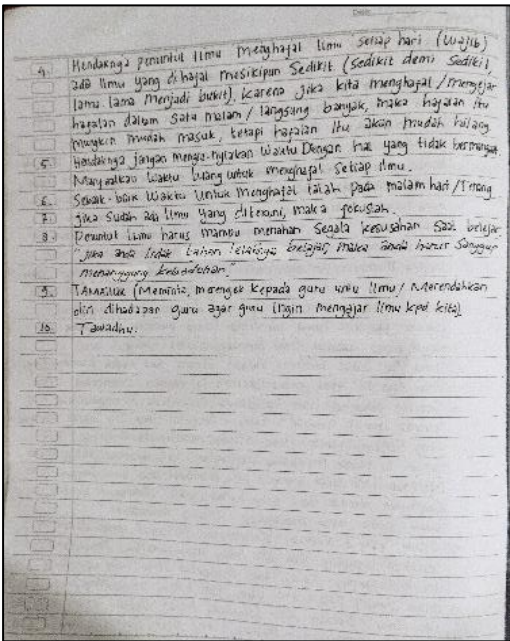 4. Hendaknya penuntut ilmu menghafal ilmu setiap hari (wajib)
ada ilmu yang dihafal meskipun sedikit (sedikit demi sedikit
lama lama menjadi bukit), karena jika kita menghafal / mengejar
hafalan dalam satu malam / langsung banyak, maka hafalan itu
mungkin mudah masuk, tetapi hafalan itu akan mudah hilang
5. Hendaknya jangan menyia-nyiakan waktu dengan hal yang tidak bermanfaat
Manfaatkan waktu luang untuk menghafal setiap ilmu.
6. Sebaik-baik waktu untuk menghafal ialah pada malam hari /
7. Jika sudah ada ilmu yang ditekuni, maka fokuslah.
8. Penuntut ilmu harus mampu menahan segala kesusahan saat belajar
"jika anda tidak tahan lelahnya belajar, maka anda harus sanggup
menanggung kebodohan."
9. TAMALLUK (Meminta, merengek kepada guru untu ilmu / Merendahkan
diri dihadapan guru agar guru ingin mengajar ilmu kpd kita)
10. Tawadhu.